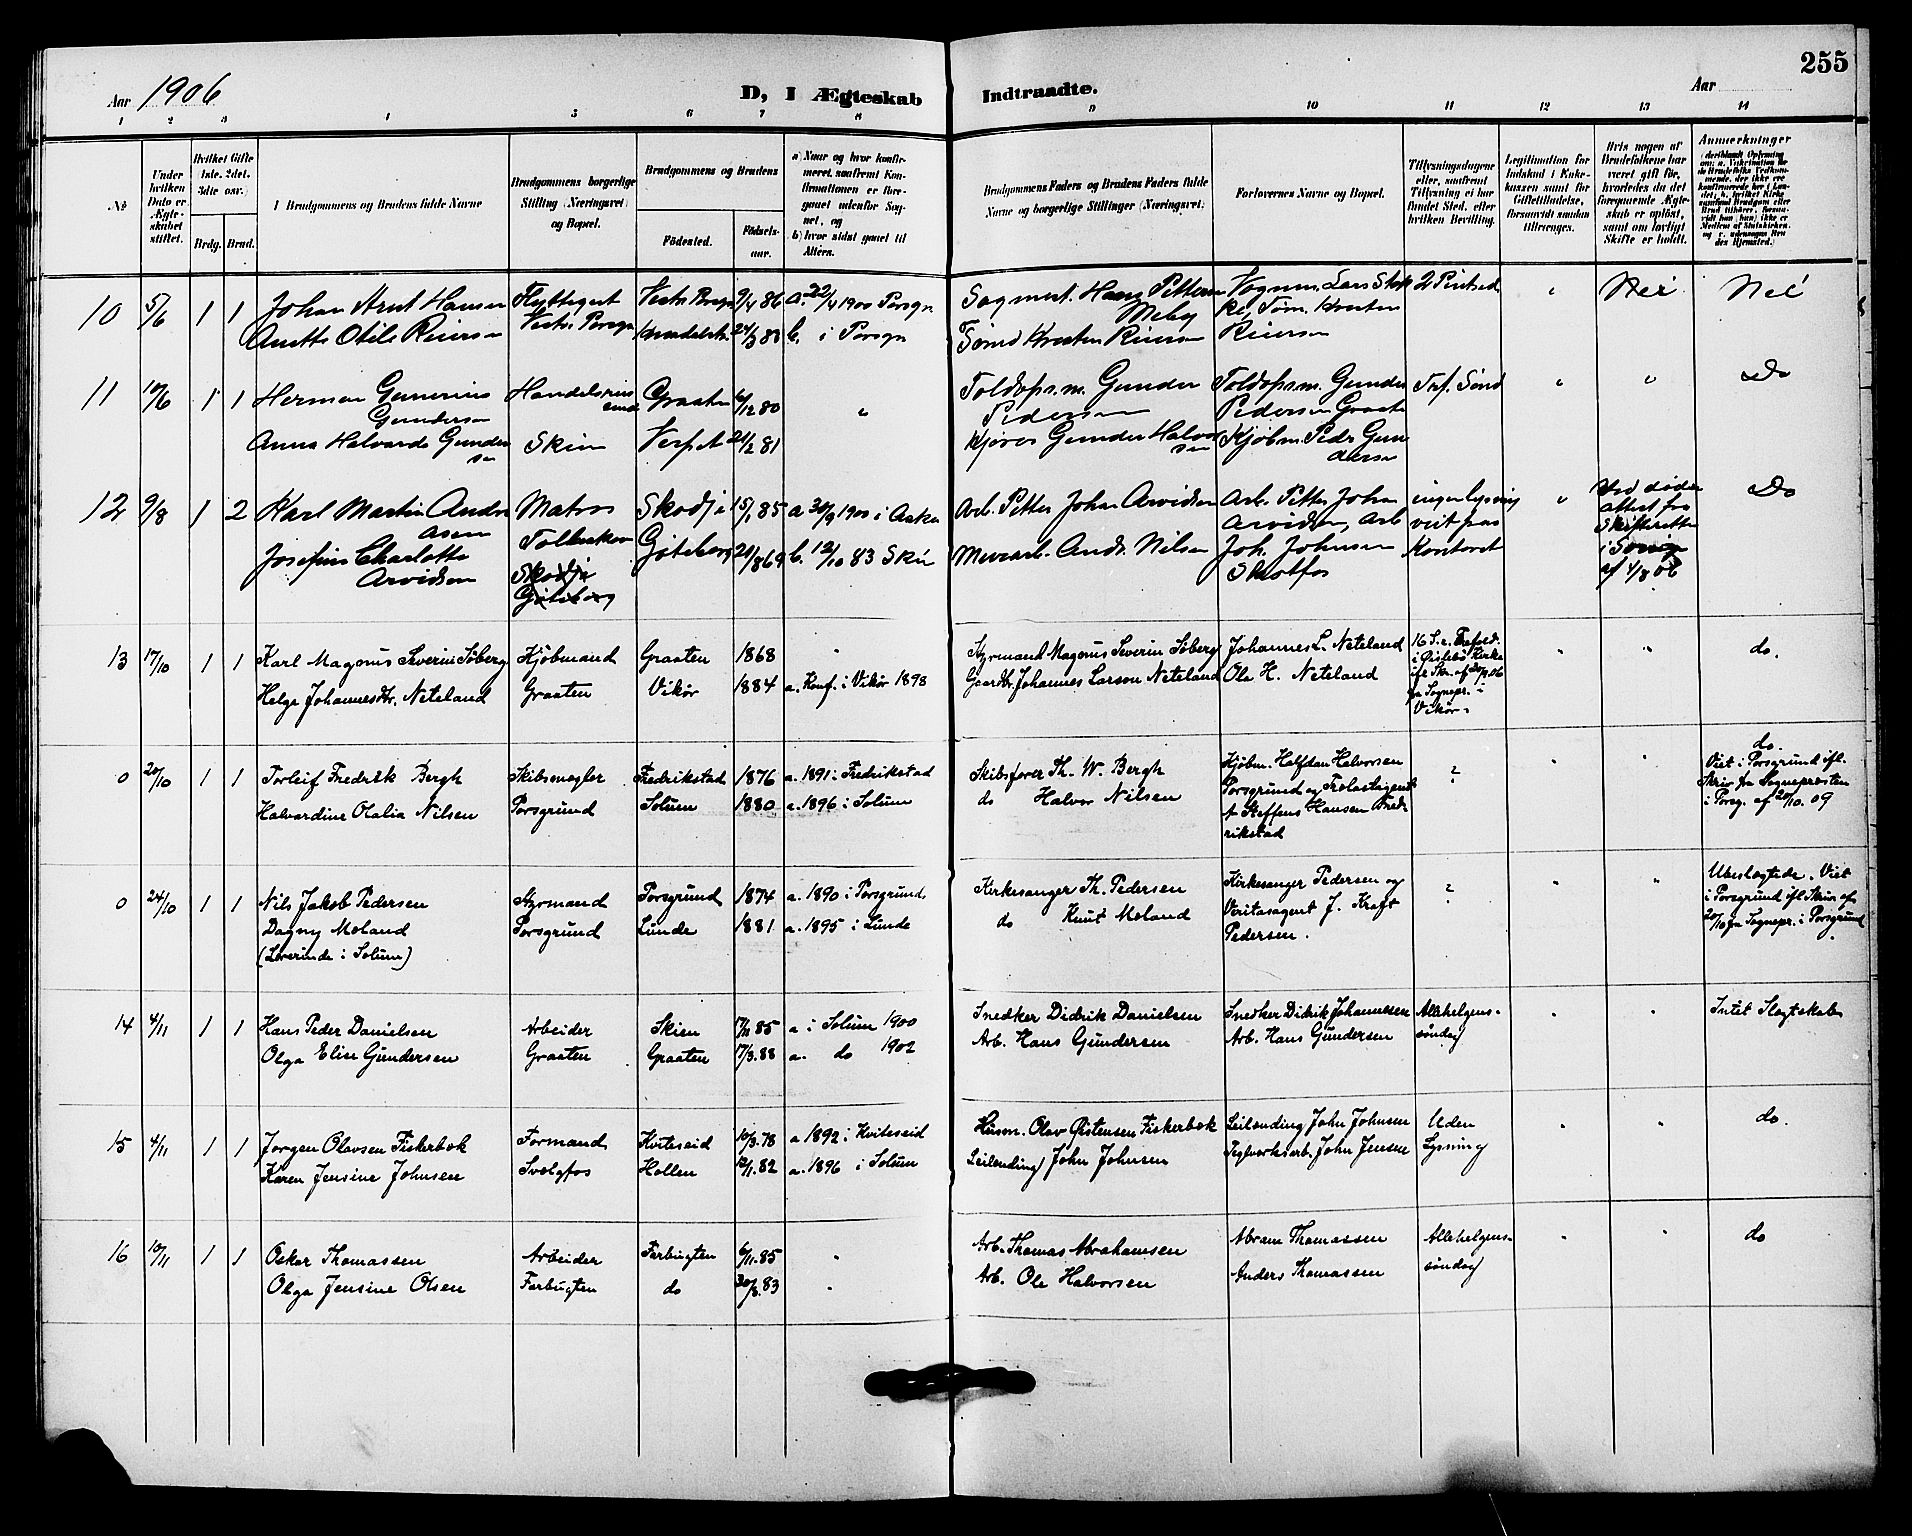 255
Aar 1906
D, I Ægteskab Indtraadte.
Aar
1 2 3 4 5 6 7 8 9 10 11 12 13 14
№
Under hvilken Dato er Ægteskabet stiftet.
Hvilket Gifte (1ste, 2det, 3die osv.)
Brdg. Brud.
1 Brudgommens og Brudens fulde Navne
Brudgommens borgerlige Stilling (Næringsvei) og Bopæl.
Brudgommens og Brudens
Fødested.
Fødselsaar.
a) Naar og hvor konfirmeret, saafremt Konfirmationen er foregaaet udenfor Sognet, og
b) hvor sidst gaaet til Alters.
Brudgommens Faders og Brudens Faders fulde Navne og borgerlige Stillinger (Næringsvei)
Forlovernes Navne og Bopæl.
Tillysningsdagene eller, saafremt Tillysning ei har fundet Sted, efter hvilken Bevilling.
Legitimation for Indskud i Enkekassen samt for Giftetilladelse, forsaavidt saadan tiltrænges.
Hvis nogen af Brudefolkene har været gift før, hvorledes da det foregaaende Ægteskab er opløst, samt om lovligt Skifte er holdt.
Anmerkninger
10 5/6 1 1 Johan Arnt Hansen Flyttegut 9/4 86 a. 22/4 1900 Porsgr. 2 Pintsed. " Nei Nei
24/3 83 b. i Porsgr
11 10/6 1 1 Herman Gunerius Graaten 6/12 80 " Toldops.m. Gunder Toldops.m. Gunder " " Do
Gundersen Pedersen Pedersen Graate
Anna Halvarda Gundersen Skien 21/2 81 Gunder Halvorsen Kjøbm. Peder Gundersen
12 9/8 1 2 Karl Martin Andreasen Matros Skodje 15/1 85 a 30/9 1900 i Asker Arb. Petter Johan Arvidsen Arb. Petter Johan ingen lysning " Do
Arvidsen, Arb viet paa
Josefine Charlotte Göteborg 21/8 69 b. 12/10 83 Ski Andr. Nilsen Joh. Johnsen Kontoret
Arvidsen Skodje Skotfos
Göteborg
13 17/10 1 1 Karl Magnus Severin Söberg Kjöbmand Graaten 1868 " Styrmand Magnus Severin Söberg Johannes L. Neteland " " do.
Helge Johannesdtr. Neteland Graaten Vikör 1884 a. Konf. i Vikör 1898 Gaardbr. Johannes Larson Neteland Ole H. Neteland
fra Sognepr. i
Vikør.
0 20/10 1 1 Torleif Fredrik Bergh Skibsmægler Fredrikstad 1876 a. 1891 i Fredrikstad Skibsfører Th. W. Bergh Kjøbm. Halfdan Halvorsen ? " " do.
Halvardine Olalia Nilsen Porsgrund Solum 1880 a. 1896 i Solum do Halvor Nilsen Porsgrund og Trelastagent
A. Steffens Hansen Fredrikstad
Viet i Porsgrund ifl. Skriv fra Sognepræsten i Porsg. af 20/10. 09
0 24/10 1 1 Nils Jakob Pedersen Styrmand Porsgrund 1874 a. 1890 i Porsgrund Kirkesanger Th. Pedersen Kirkesanger Pedersen og ? " " Ubeslægtede. Viet
Dagny Moland Porsgrund Lunde 1881 a. 1895 i Lunde do Knut Moland Veritasagent J. Kraft i Porsgrund ifl. Skriv af
(Lærerinde i Solum) Pedersen. 20/10 fra Sognepr. i Porsgrund.
14 4/11 1 1 Hans Peder Danielsen Arbeider Skien 7/11 85 a i Solum 1900 Snedker Didrik Danielsen Snedker Didrik Johannesen Allehelgens- " " Intet Slegtskab
Olga Elise Gundersen Graaten Graaten 17/3. 88 a. do 1902 Arb. Hans Gundersen Arb. Hans Gundersen söndag
15 4/11 1 1 Jørgen Olavsen Fiskerbæk Formand Kviteseid 10/3. 78 a 1892 i Kviteseid Husm. Olav Østensen Fiskerbæk Leilending John Johnsen Uden " " do.
Karen Jensine Johnsen Svelgfos Hollen 12/1. 82 a. 1896 i Solum Leilending John Johnsen Teglverksarb. John Jensen Lysning
16 10/11 1 1 Oskar Thomassen Arbeider Farbugten 6/11. 85 " Arb. Thomas Abrahamsen Abram Thomassen Allehelgens- " " do
Olga Jensine Olsen Farbugten do 30/8. 83 " Arb. Ole Halvorsen Anders Thomassen söndag